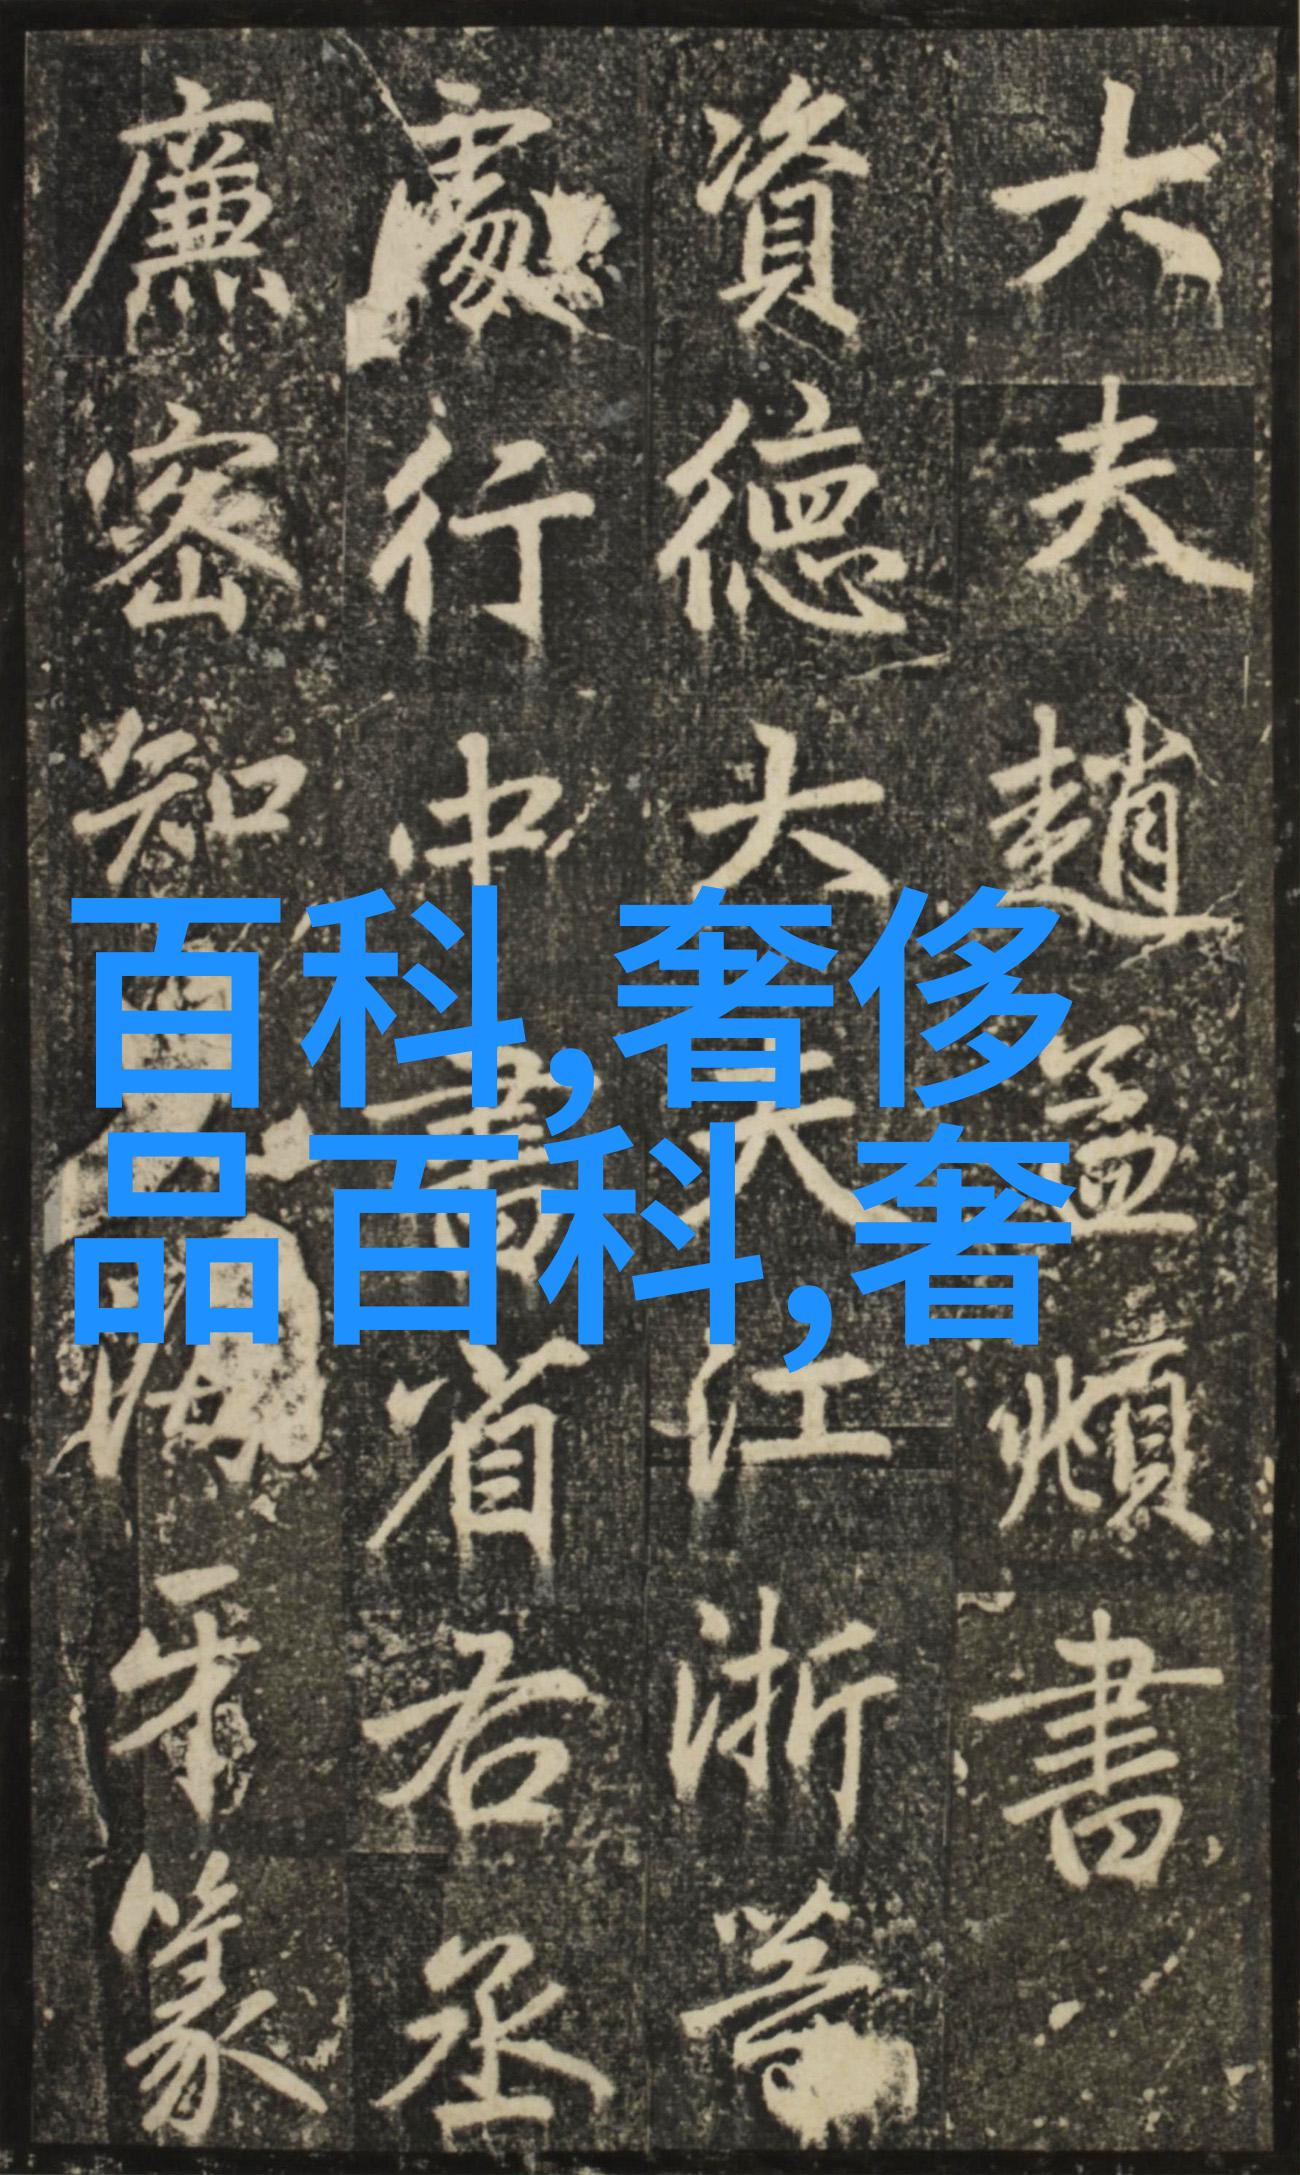 大夫趙孟頫書
資德大夫江浙等
處行中書省右丞
廉密知海牙篆
百科,奢侈
品百科,奢